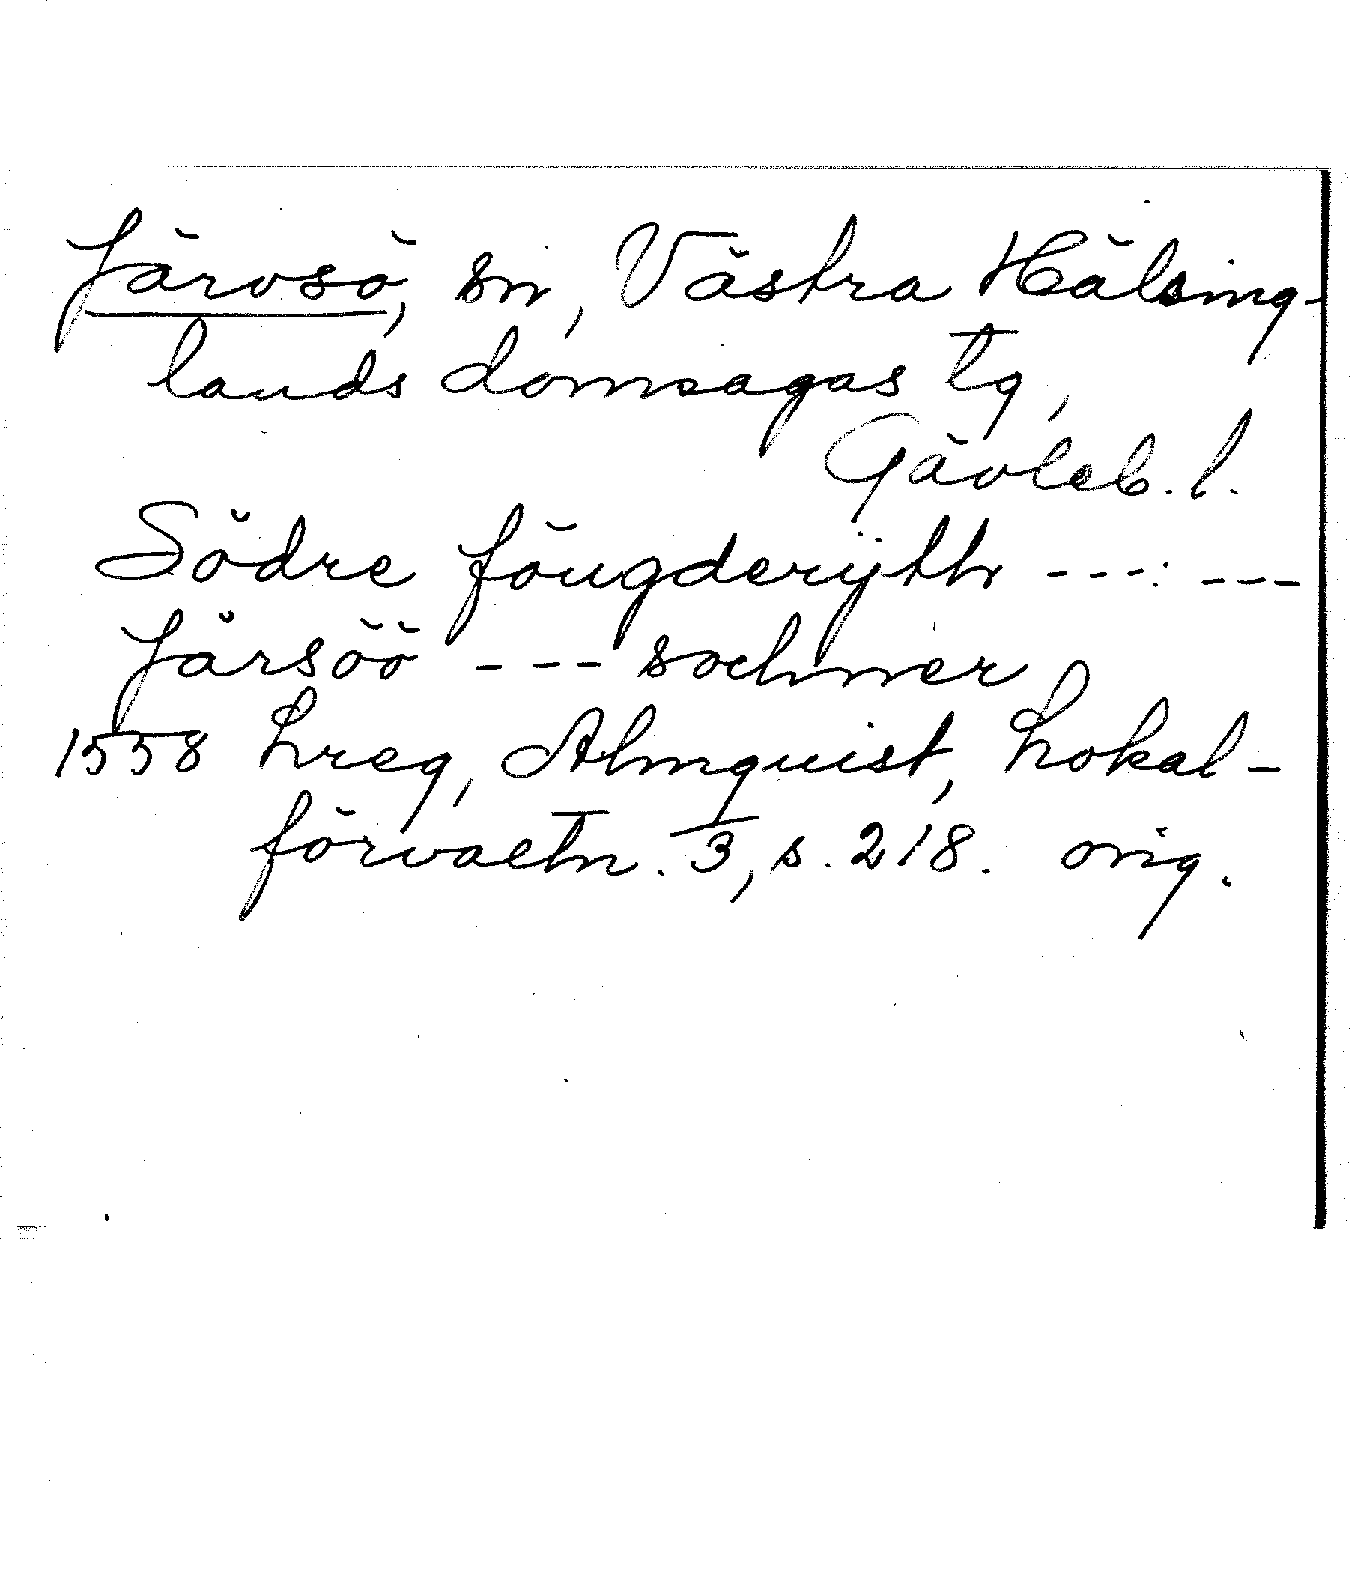 Järvsö, sn, Västra Hälsing-
lands domsagas tg,
Gävleb. l.
Södre föugderÿtth ---: ---
Järsöö --- sochner
1558 Lreg, Almquist, Lokal-
förvaltn. 3, s. 218. orig.